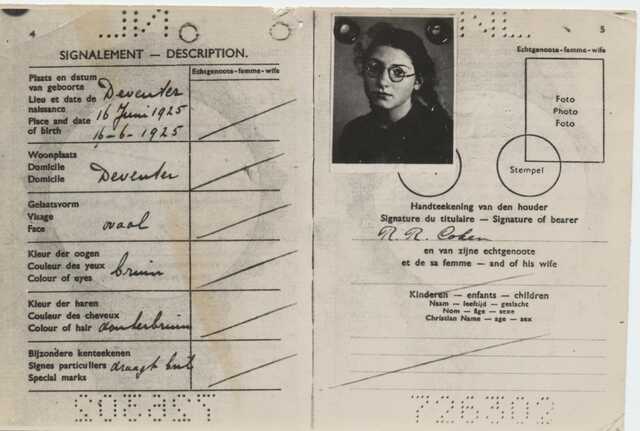 4
SIGNALEMENT — DESCRIPTION.
Plaats en datum
van geboorte
Lieu et date de
naissance
Place and date
of birth
Deventer
16 Juni 1925
16-6-1925
Echtgenoote-femme-wife
Woonplaats
Domicile
Domicile
Deventer
Gelaatsvorm
Visage
Face
ovaal
Kleur der oogen
Couleur des yeux
Colour of eyes
bruin
Kleur der haren
Couleur des cheveux
Colour of hair
donkerbruin
Bijzondere kenteekenen
Signes particuliers
Special marks
draagt bril
5
Echtgenoote-femme-wife
Foto
Photo
Foto
Stempel
Handteekening van den houder
Signature du titulaire — Signature of bearer
R. R. Cohen
en van zijne echtgenoote
et de sa femme — and of his wife
Kinderen — enfants — children
Naam — leeftijd — geslacht
Nom — âge — sexe
Christian Name — age — sex
726302